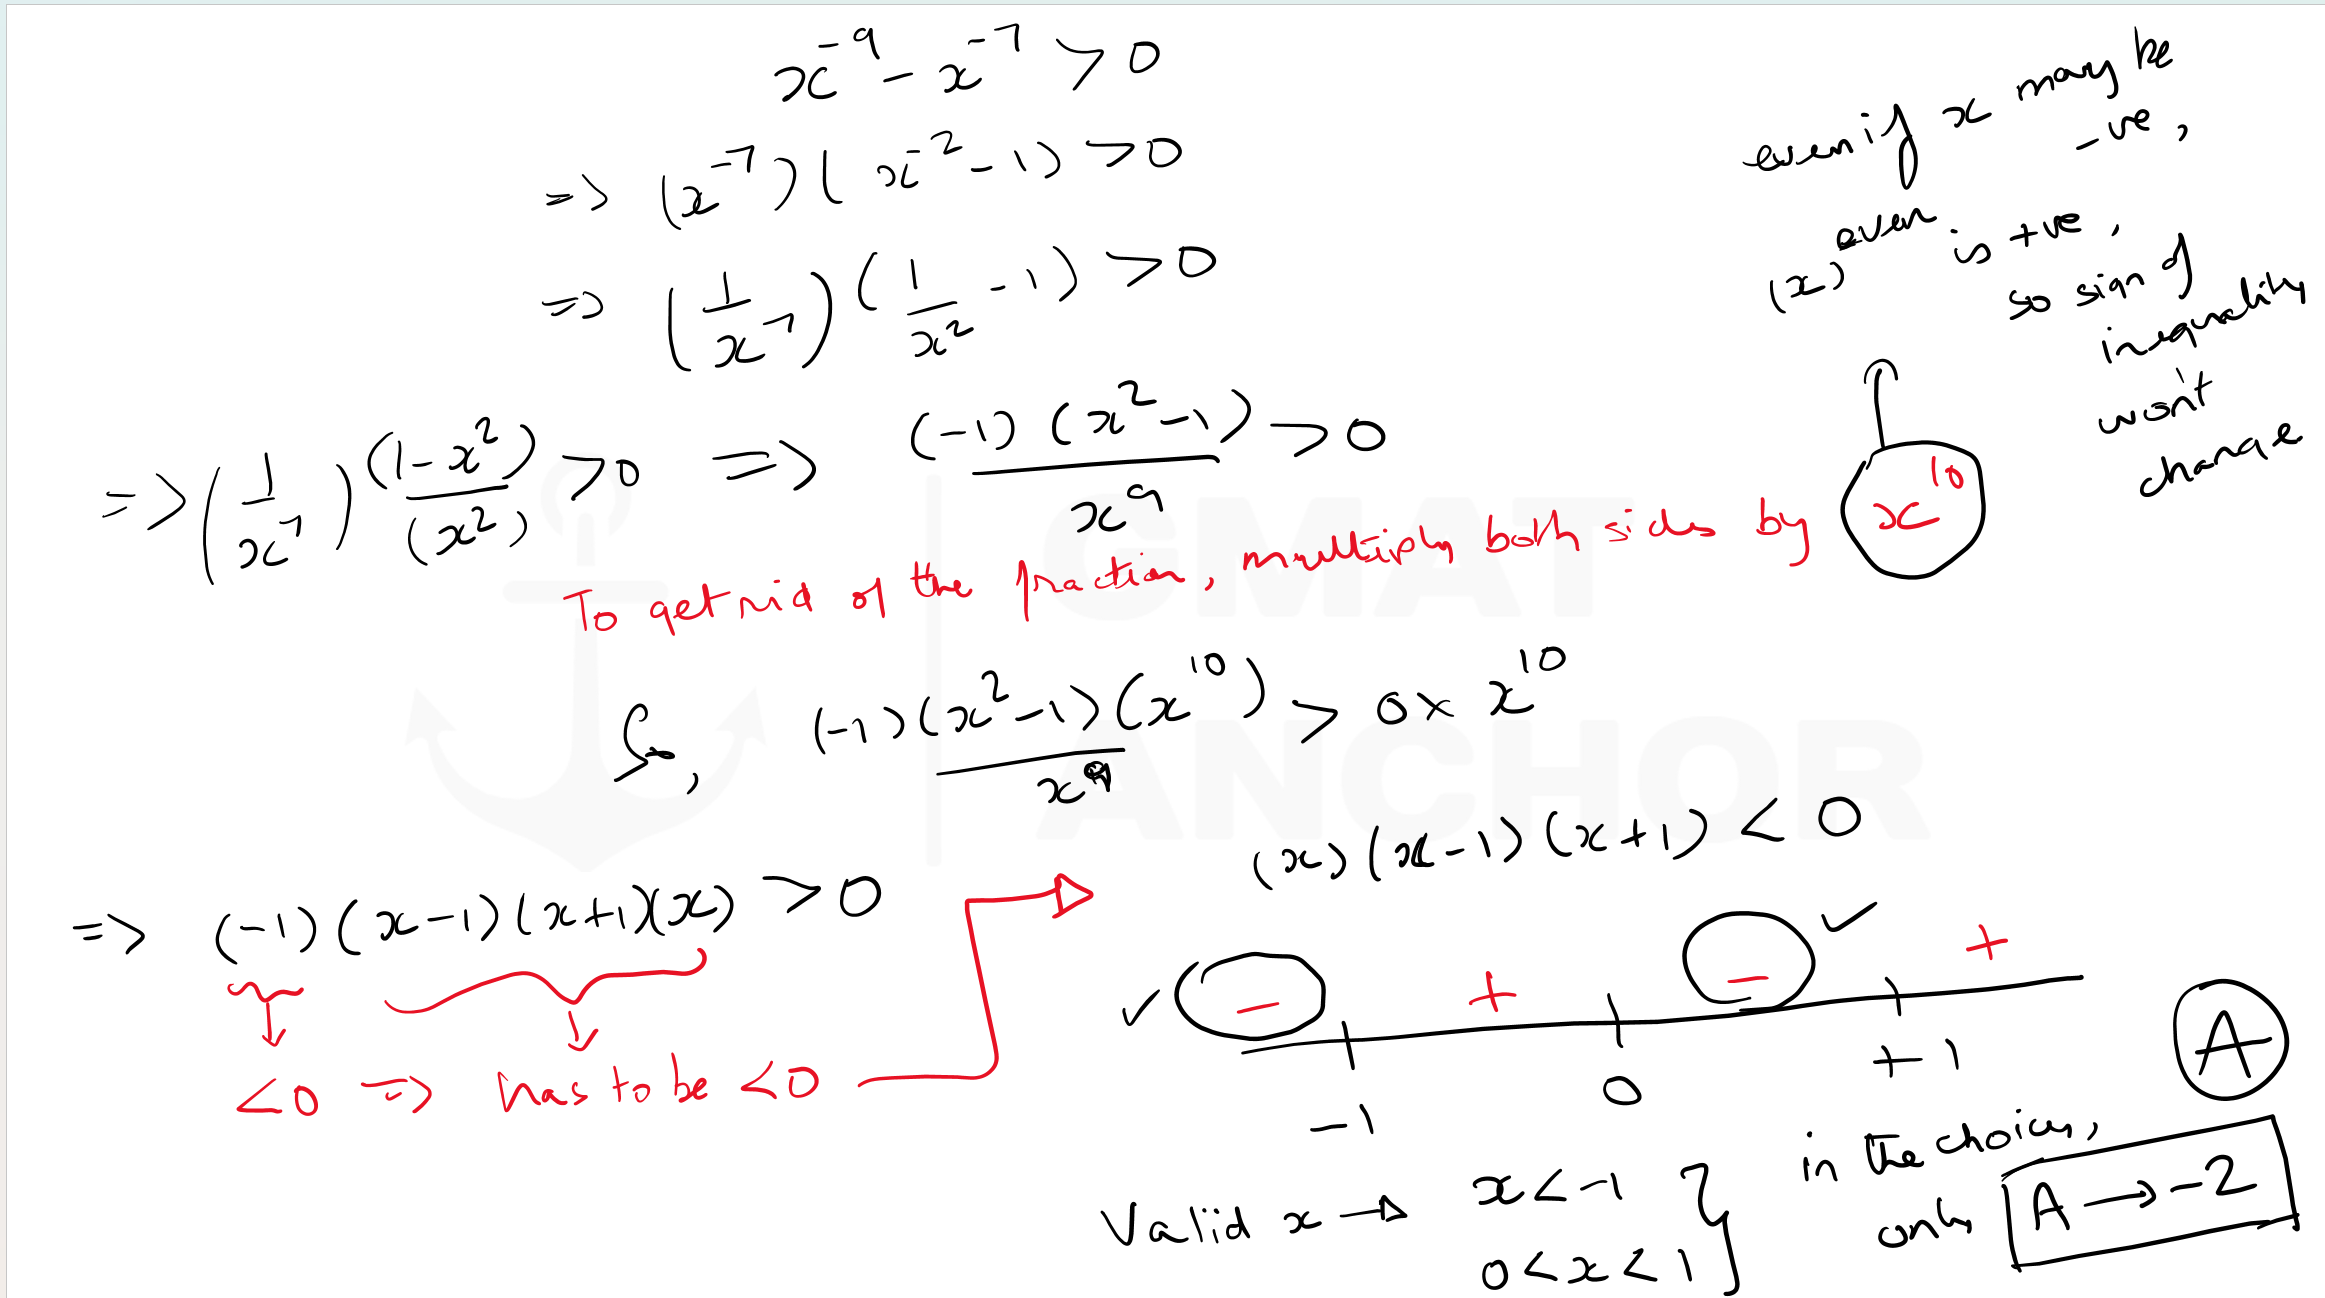 x⁻⁹ - x⁻⁷ > 0
=> (x⁻⁷)(x⁻² - 1) > 0
=> (1/x⁷)(1/x² - 1) > 0
=> (1/x⁷) (1-x²)/(x²) > 0 => (-1)(x²-1)/x⁹ > 0
even if x may be
-ve,
(x)^even is +ve,
so sign of
inequality
won't
change
To get rid of the fraction, multiply both sides by x¹⁰
So, (-1)(x²-1)(x¹⁰)/x⁹ > 0 × x¹⁰
=> (-1)(x-1)(x+1)(x) > 0
<0 => has to be <0
(x)(x-1)(x+1) < 0
✓ - + - ✓ +
-1 0 +1
A
Valid x → x < -1
0 < x < 1
in the choices,
only A → -2
GMAT
ANCHOR